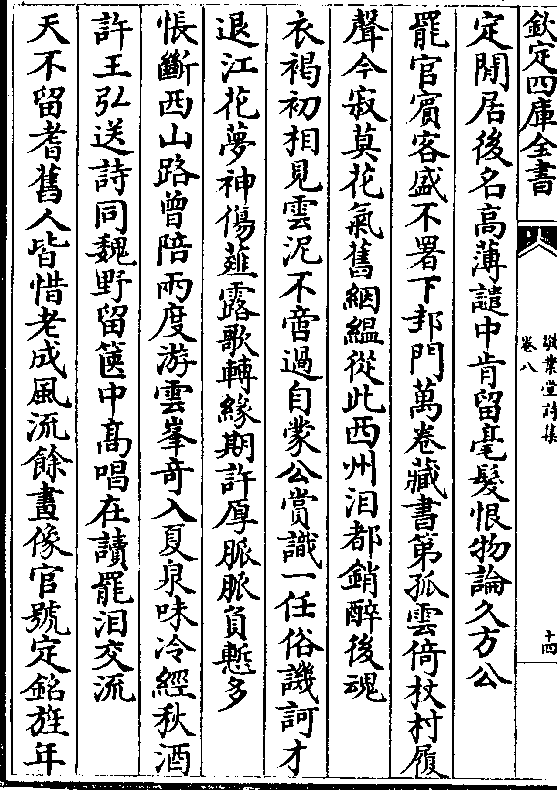 欽定四庫全書
敬業堂詩集
卷八
十四
定閒居後名高薄譴中肯留毫髮恨物論久方公
罷官賓客盛不署下邽門萬卷藏書第孤雲倚杖村履
聲今寂莫花氣舊絪緼從此西州泪都銷醉後魂
衣褐初相見雲泥不啻過自蒙公賞識一任俗譏訶才
退江花夢神傷薤露歌轉緣期許厚脈脈負慙多
悵斷西山路曾陪兩度游雲峯竒入夏泉味冷經秋酒
許王弘送詩同魏野留篋中髙唱在讀罷泪交流
天不留耆舊人皆惜老成風流餘畫像官號定銘旌年